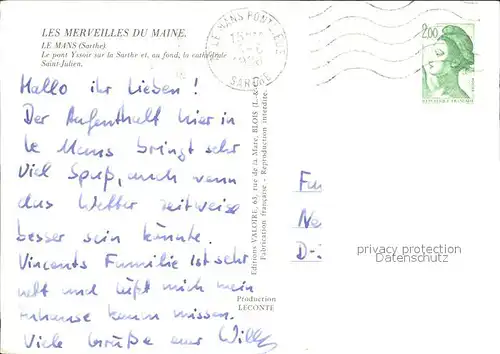 LES MERVEILLES DU MAINE.
LE MANS (Sarthe).
Le pont Yssoir sur la Sarthe et, au fond, la cathédrale
Saint-Julien.
LE MANS PONT-LIEUE
SARTHE
2,00
REPUBLIQUE FRANÇAISE
Hallo ihr Lieben!
Der Aufenthalt hier in
Le Mans bringt sehr
viel Spaß, auch wenn
das Wetter zeitweise
besser sein könnte.
Vincents Familie ist sehr
nett und läßt mich mein
zuhause kaum missen.
Viele Grüße aus
Editions VALOIRE, 63, rue de la Mare, BLOIS
Fabrication française - Reproduction interdite.
Production
LECONTE
Fa
Ne
D-
privacy protection
Datenschutz